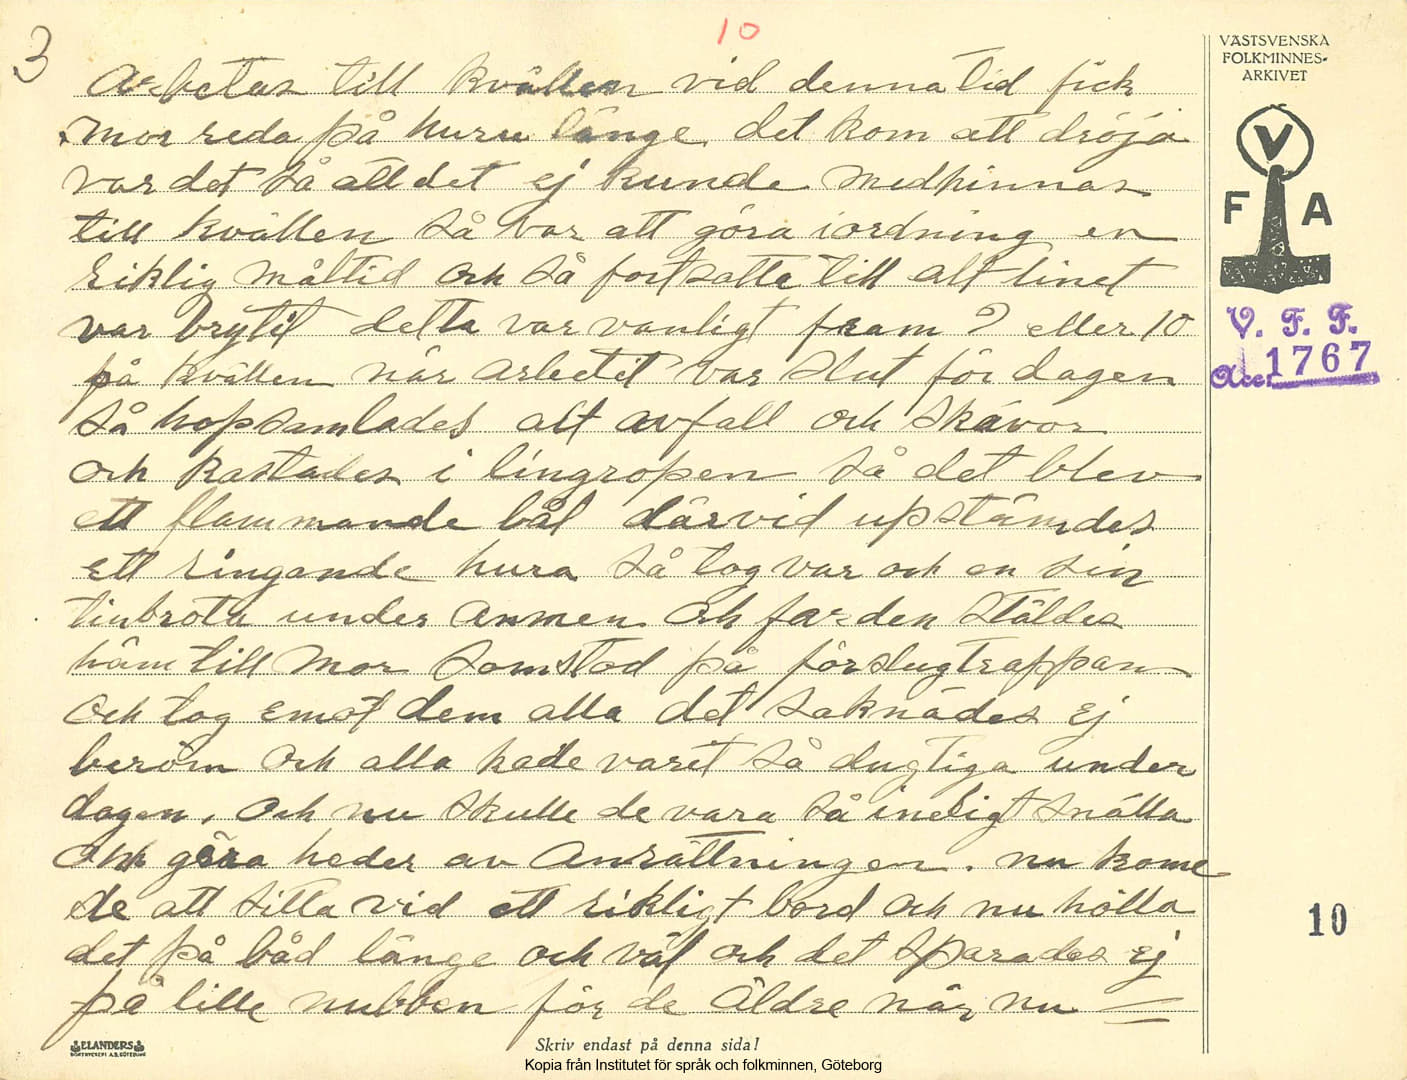 3
10
Arbetas till kvällen vid denna tid fick
mor reda på huru länge det kom att dröja
var det så att det ej kunde medhinnas
till kvällen så var att göra iordning en
riklig måltid och så fortsatte till alt linet
var brytit detta var vanligt fram 9 eller 10
på kvällen när arbetet var slut för dagen
så hopsamlades alt avfall och skävor
och kastades i lingropen så det blev
ett flammande bål därvid upstämdes
ett ringande hura så tog var och en sin
linbrota under armen och farden stäldes
häm till Mor som stod på förstugtrappan
och tog emot dem alla det saknades ej
beröm och alla hade varit så dugtiga under
dagen, och nu skulle de vara så ineligt snälla
och göra heder av Anrättningen. nu kome
de att sitta vid ett rikligt bord och nu hölls
det på båd länge och väl och det sparades ej
på lille nubben för de Äldre när nu —
VÄSTSVENSKA
FOLKMINNES-
ARKIVET
V
F A
V. F. F.
Acc. 1767
10
ELANDERS
BOKTRYCKERI A.B. GÖTEBORG
Skriv endast på denna sida!
Kopia från Institutet för språk och folkminnen, Göteborg